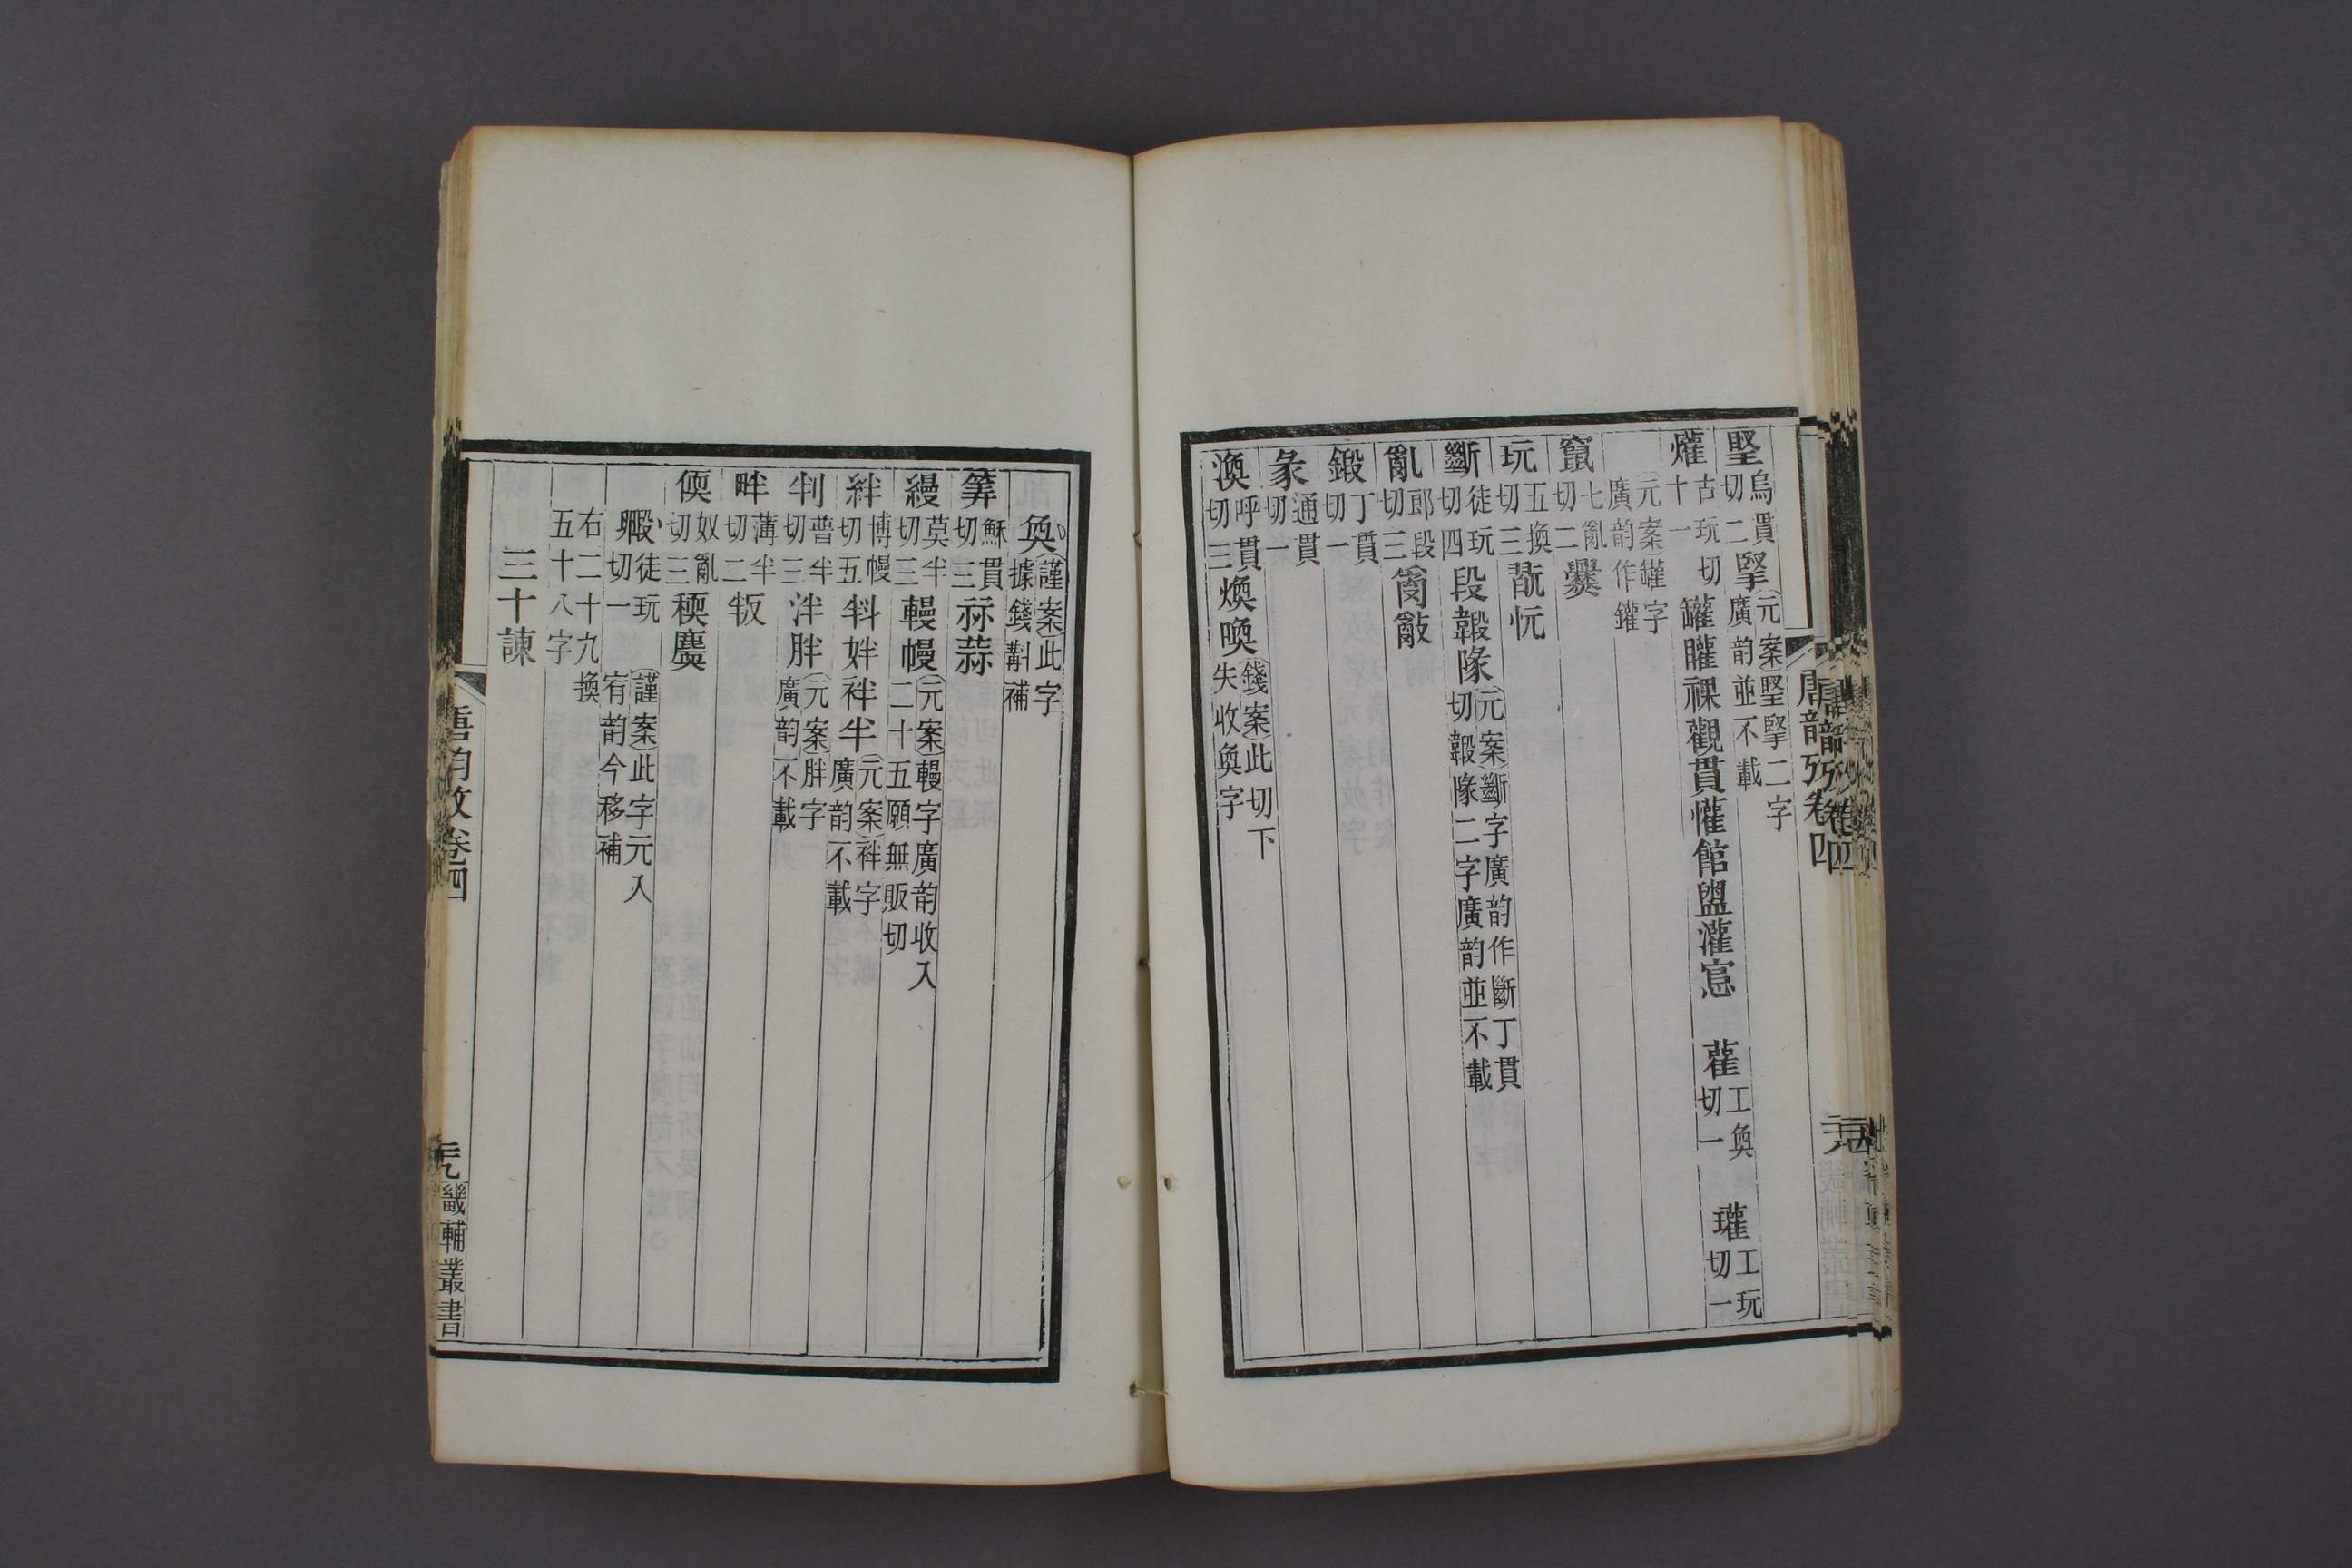 烏貫切二掔元案堅掔二字廣韵並不載
爟古玩切十一罐矔祼觀貫懽館盥灌悹 雚工奐切一 瓘工玩切一
元案罐字廣韵作鑵
竄七亂切二爨
玩五換切三翫忨
斷徒玩切四段毈隊元案斷字廣韵作斷丁貫切毈隊二字廣韵並不載
亂郎段切三敿
鍛丁貫切一
彖通貫切一
渙呼貫切三煥喚錢案此切下失收奐字
唐韻攷卷四
奐謹案此字據錢斠補
筭穌貫切三祘蒜
縵莫半切三鞔幔元案鞔字廣韵收入二十五願無販切
絆博幔切五料姅袢半元案袢字廣韵不載
判普半切三泮胖元案胖字廣韵不載
畔薄半切二𤘽
偄奴亂切三稬麌
徒玩切一謹案此字元入宥韵今移補
右二十九換五十八字
三十諫
唐韵攷卷四
畿輔叢書